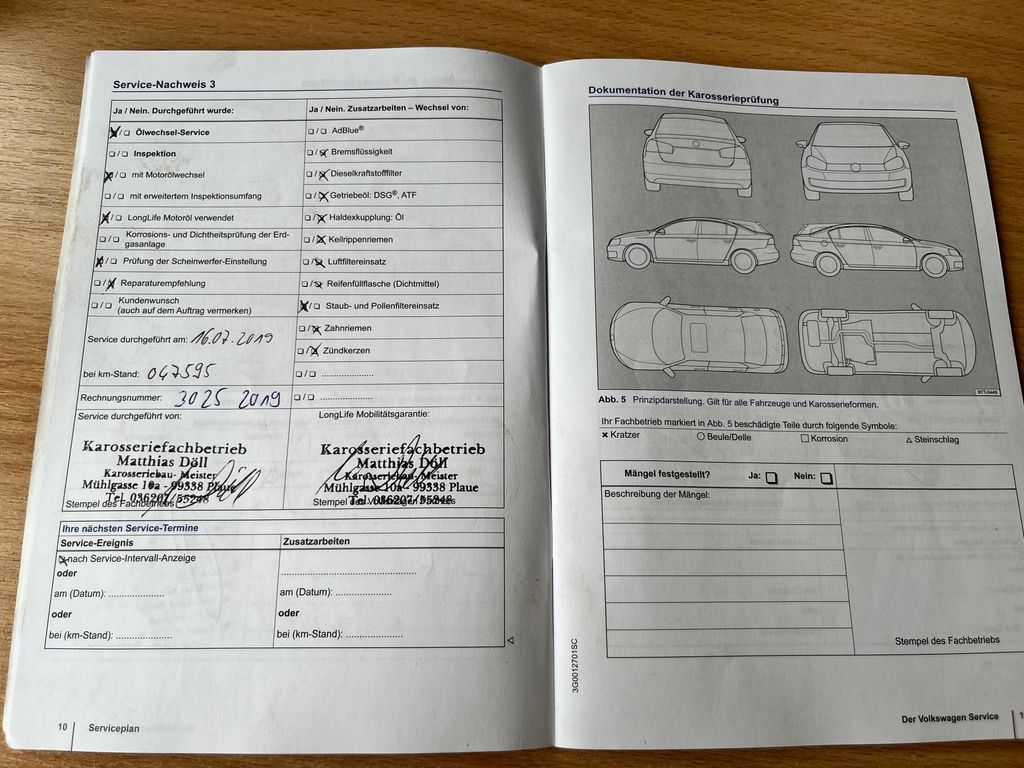 Service-Nachweis 3
Ja / Nein. Durchgeführt wurde:
Ölwechsel-Service
Inspektion
mit Motorölwechsel
mit erweitertem Inspektionsumfang
LongLife Motoröl verwendet
Korrosions- und Dichtheitsprüfung der Erd-
gasanlage
Prüfung der Scheinwerfer-Einstellung
Reparaturempfehlung
Kundenwunsch
(auch auf dem Auftrag vermerken)
Service durchgeführt am: 16.07.2019
bei km-Stand: 047595
Rechnungsnummer: 3025 2019
Service durchgeführt von:
Karosseriefachbetrieb
Matthias Döll
Karosseriebau- Meister
Mühlgasse 10a - 99338 Plaue
Tel. 036207/55248
Stempel des Fachbetriebes
Ja / Nein. Zusatzarbeiten – Wechsel von:
AdBlue®
Bremsflüssigkeit
Dieselkraftstofffilter
Getriebeöl: DSG®, ATF
Haldexkupplung: Öl
Keilrippenriemen
Luftfiltereinsatz
Reifenfüllflasche (Dichtmittel)
Staub- und Pollenfiltereinsatz
Zahnriemen
Zündkerzen
LongLife Mobilitätsgarantie:
Karosseriefachbetrieb
Matthias Döll
Karosseriebau- Meister
Mühlgasse 10a - 99338 Plaue
Tel. 036207/55248
Stempel des Volkswagen
Ihre nächsten Service-Termine
Service-Ereignis
nach Service-Intervall-Anzeige
oder
am (Datum): .....................
oder
bei (km-Stand): .....................
Zusatzarbeiten
am (Datum): .....................
oder
bei (km-Stand): .....................
10 Serviceplan
Dokumentation der Karosserieprüfung
BTT-0449
Abb. 5 Prinzipdarstellung. Gilt für alle Fahrzeuge und Karosserieformen.
Ihr Fachbetrieb markiert in Abb. 5 beschädigte Teile durch folgende Symbole:
× Kratzer ○ Beule/Delle □ Korrosion △ Steinschlag
Mängel festgestellt? Ja: Nein:
Beschreibung der Mängel:
Stempel des Fachbetriebs
3G0012701SC
Der Volkswagen Service